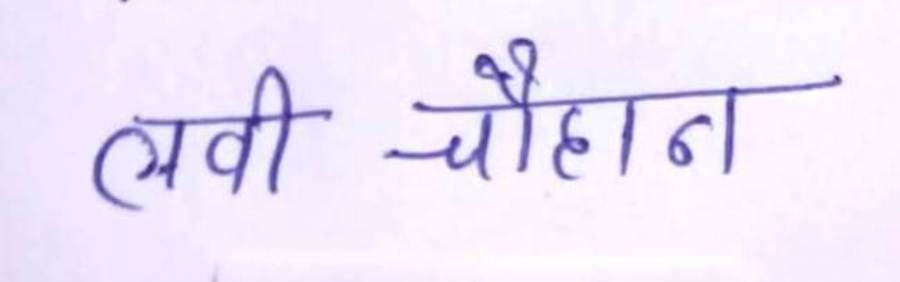 लवी चौहान